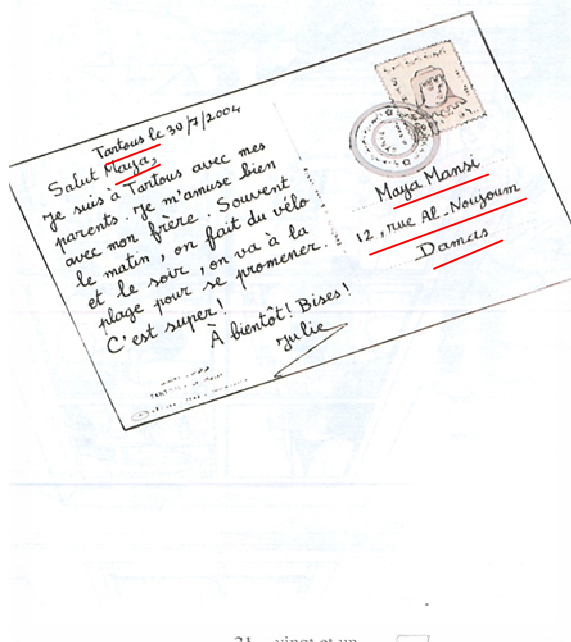 Tartous le 30/7/2004
Salut Maya,
Je suis à Tartous avec mes
parents. Je m'amuse bien
avec mon frère. Souvent
le matin, on fait du vélo
et le soir, on va à la
plage pour se promener.
C'est super!
À bientôt! Bises!
Julie
Maya Mansi
12, rue Al-Noujoum
Damas
21 vingt et un